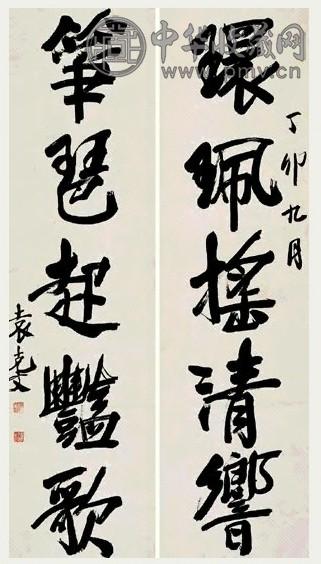 中华收藏网
www.pmy.cn
環珮搖清響
丁卯九月
箏琶起豔歌
袁克文